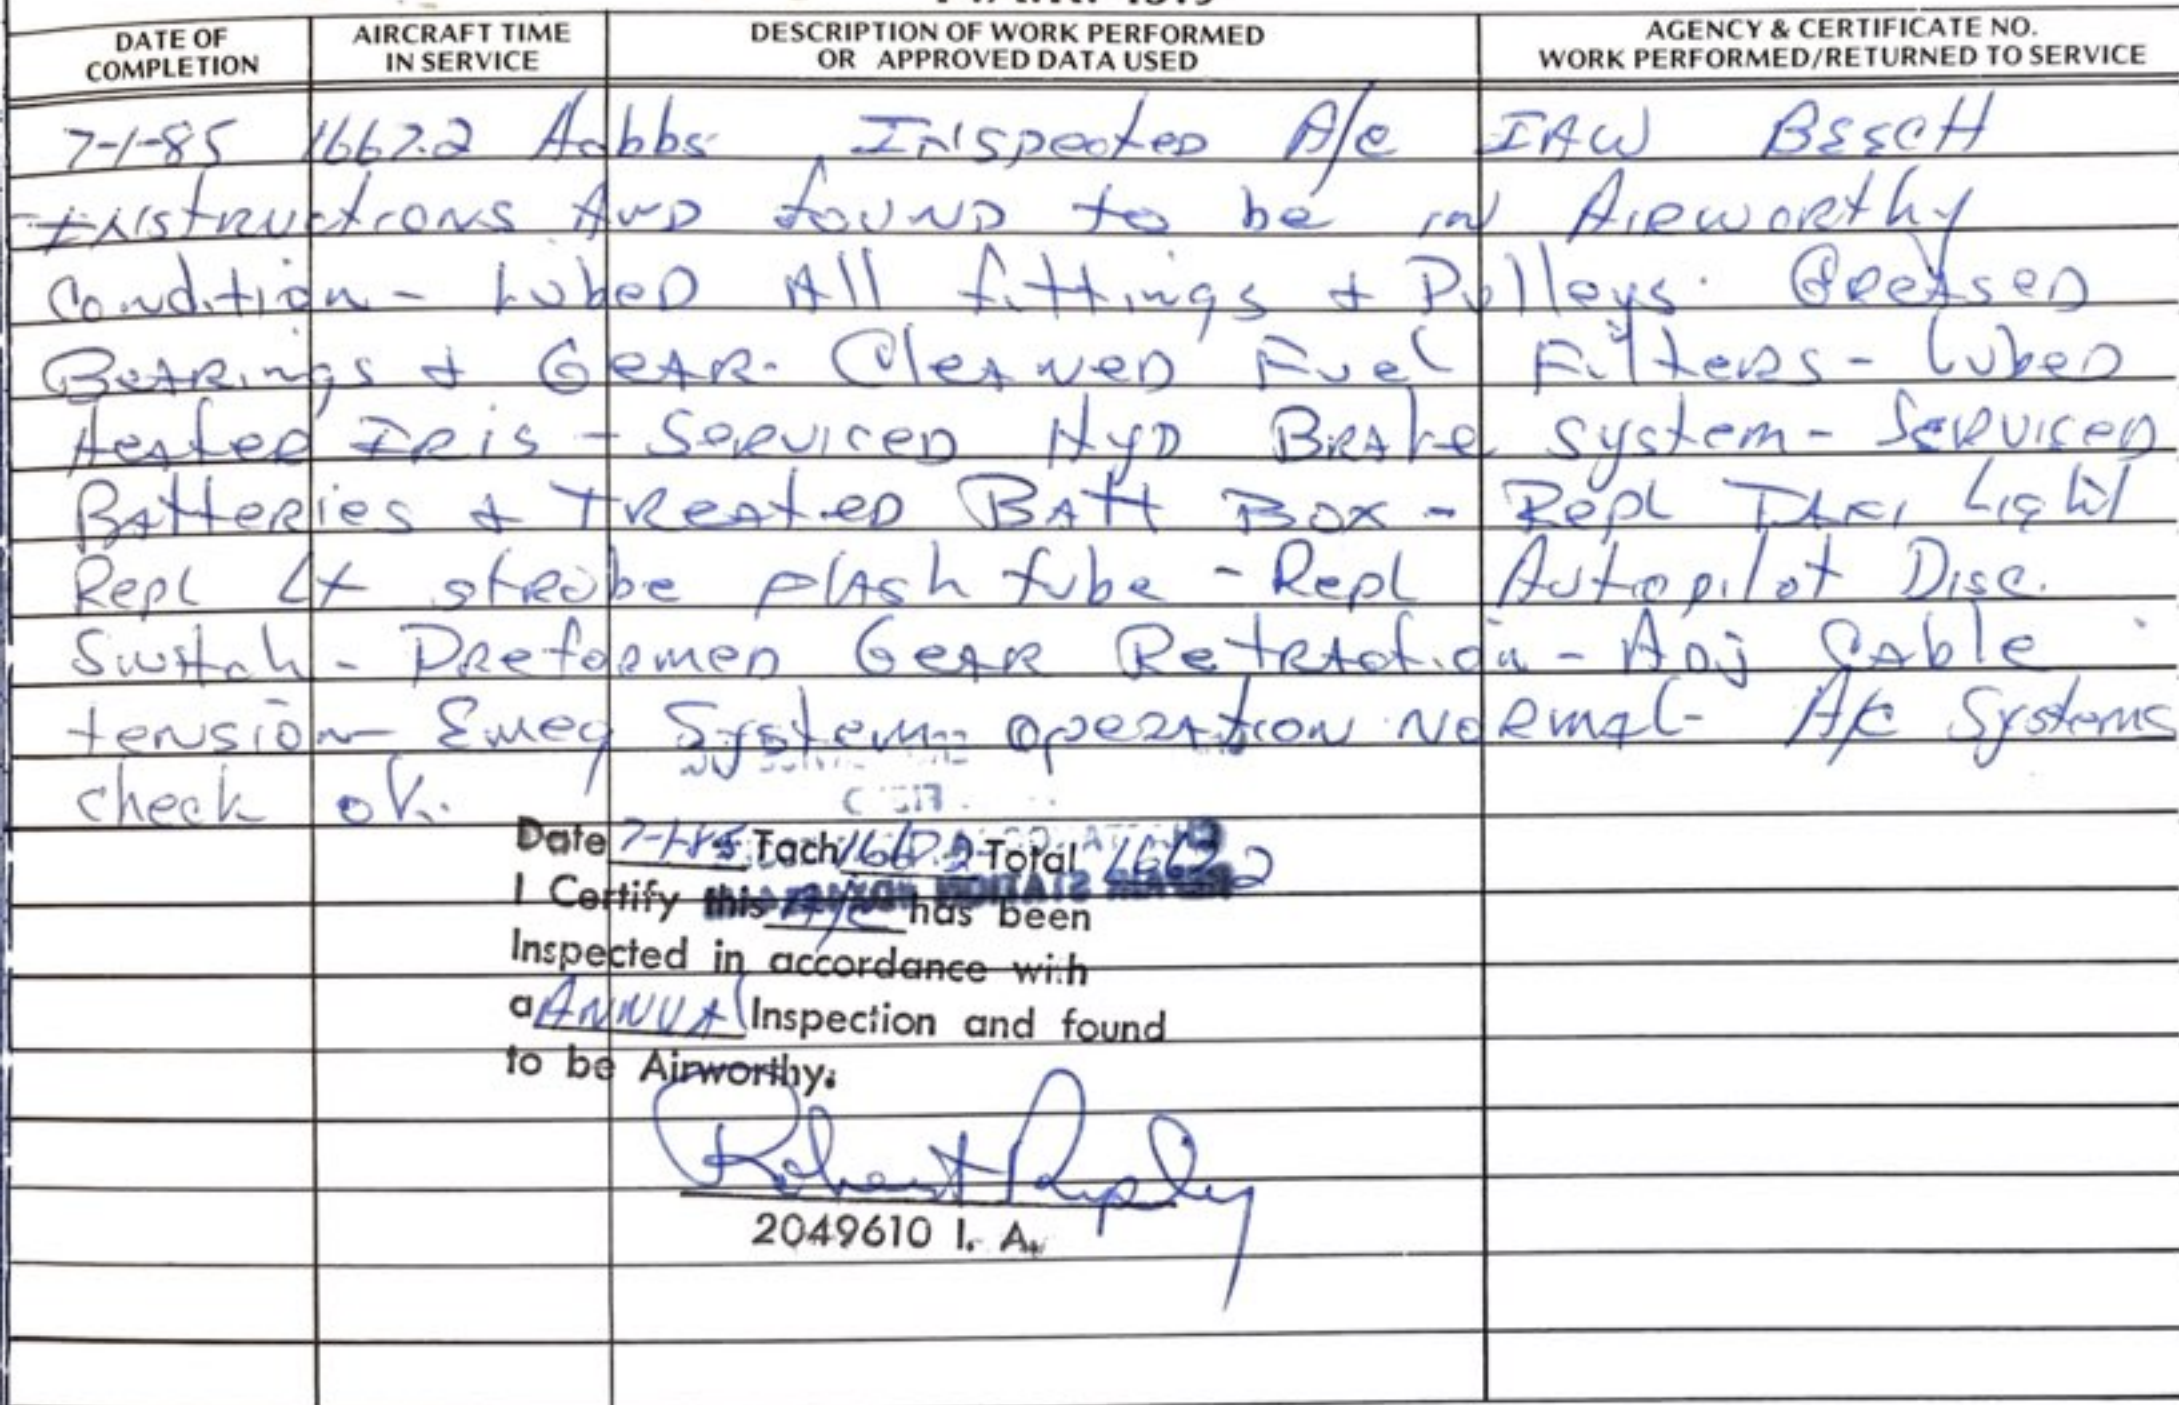 DATE OF COMPLETION AIRCRAFT TIME IN SERVICE DESCRIPTION OF WORK PERFORMED OR APPROVED DATA USED AGENCY & CERTIFICATE NO. WORK PERFORMED/RETURNED TO SERVICE
7-1-85 1667.2 Inspected A/C IAW BEECH
Instructions AND found to be in Airworthy
Condition - Lubed All fittings & Pulleys. Greased
Bearings & Gear. Cleaned Fuel Filters - Lubed
Heated Iris - Serviced Hyd Brake system - Serviced
Batteries & Treated Batt Box - Repl Taxi Light
Repl Lt strobe flash tube - Repl Autopilot Disc.
Switch - Preformed Gear Retraction - Adj Cable
tension - Emeg System operation Normal - A/C Systems
check ok.
Date 7-1-85 Tach 1667.2 Total 1667.2
I Certify this A/C has been
Inspected in accordance with
a Annual Inspection and found
to be Airworthy.
Robert Ripley
2049610 I. A.